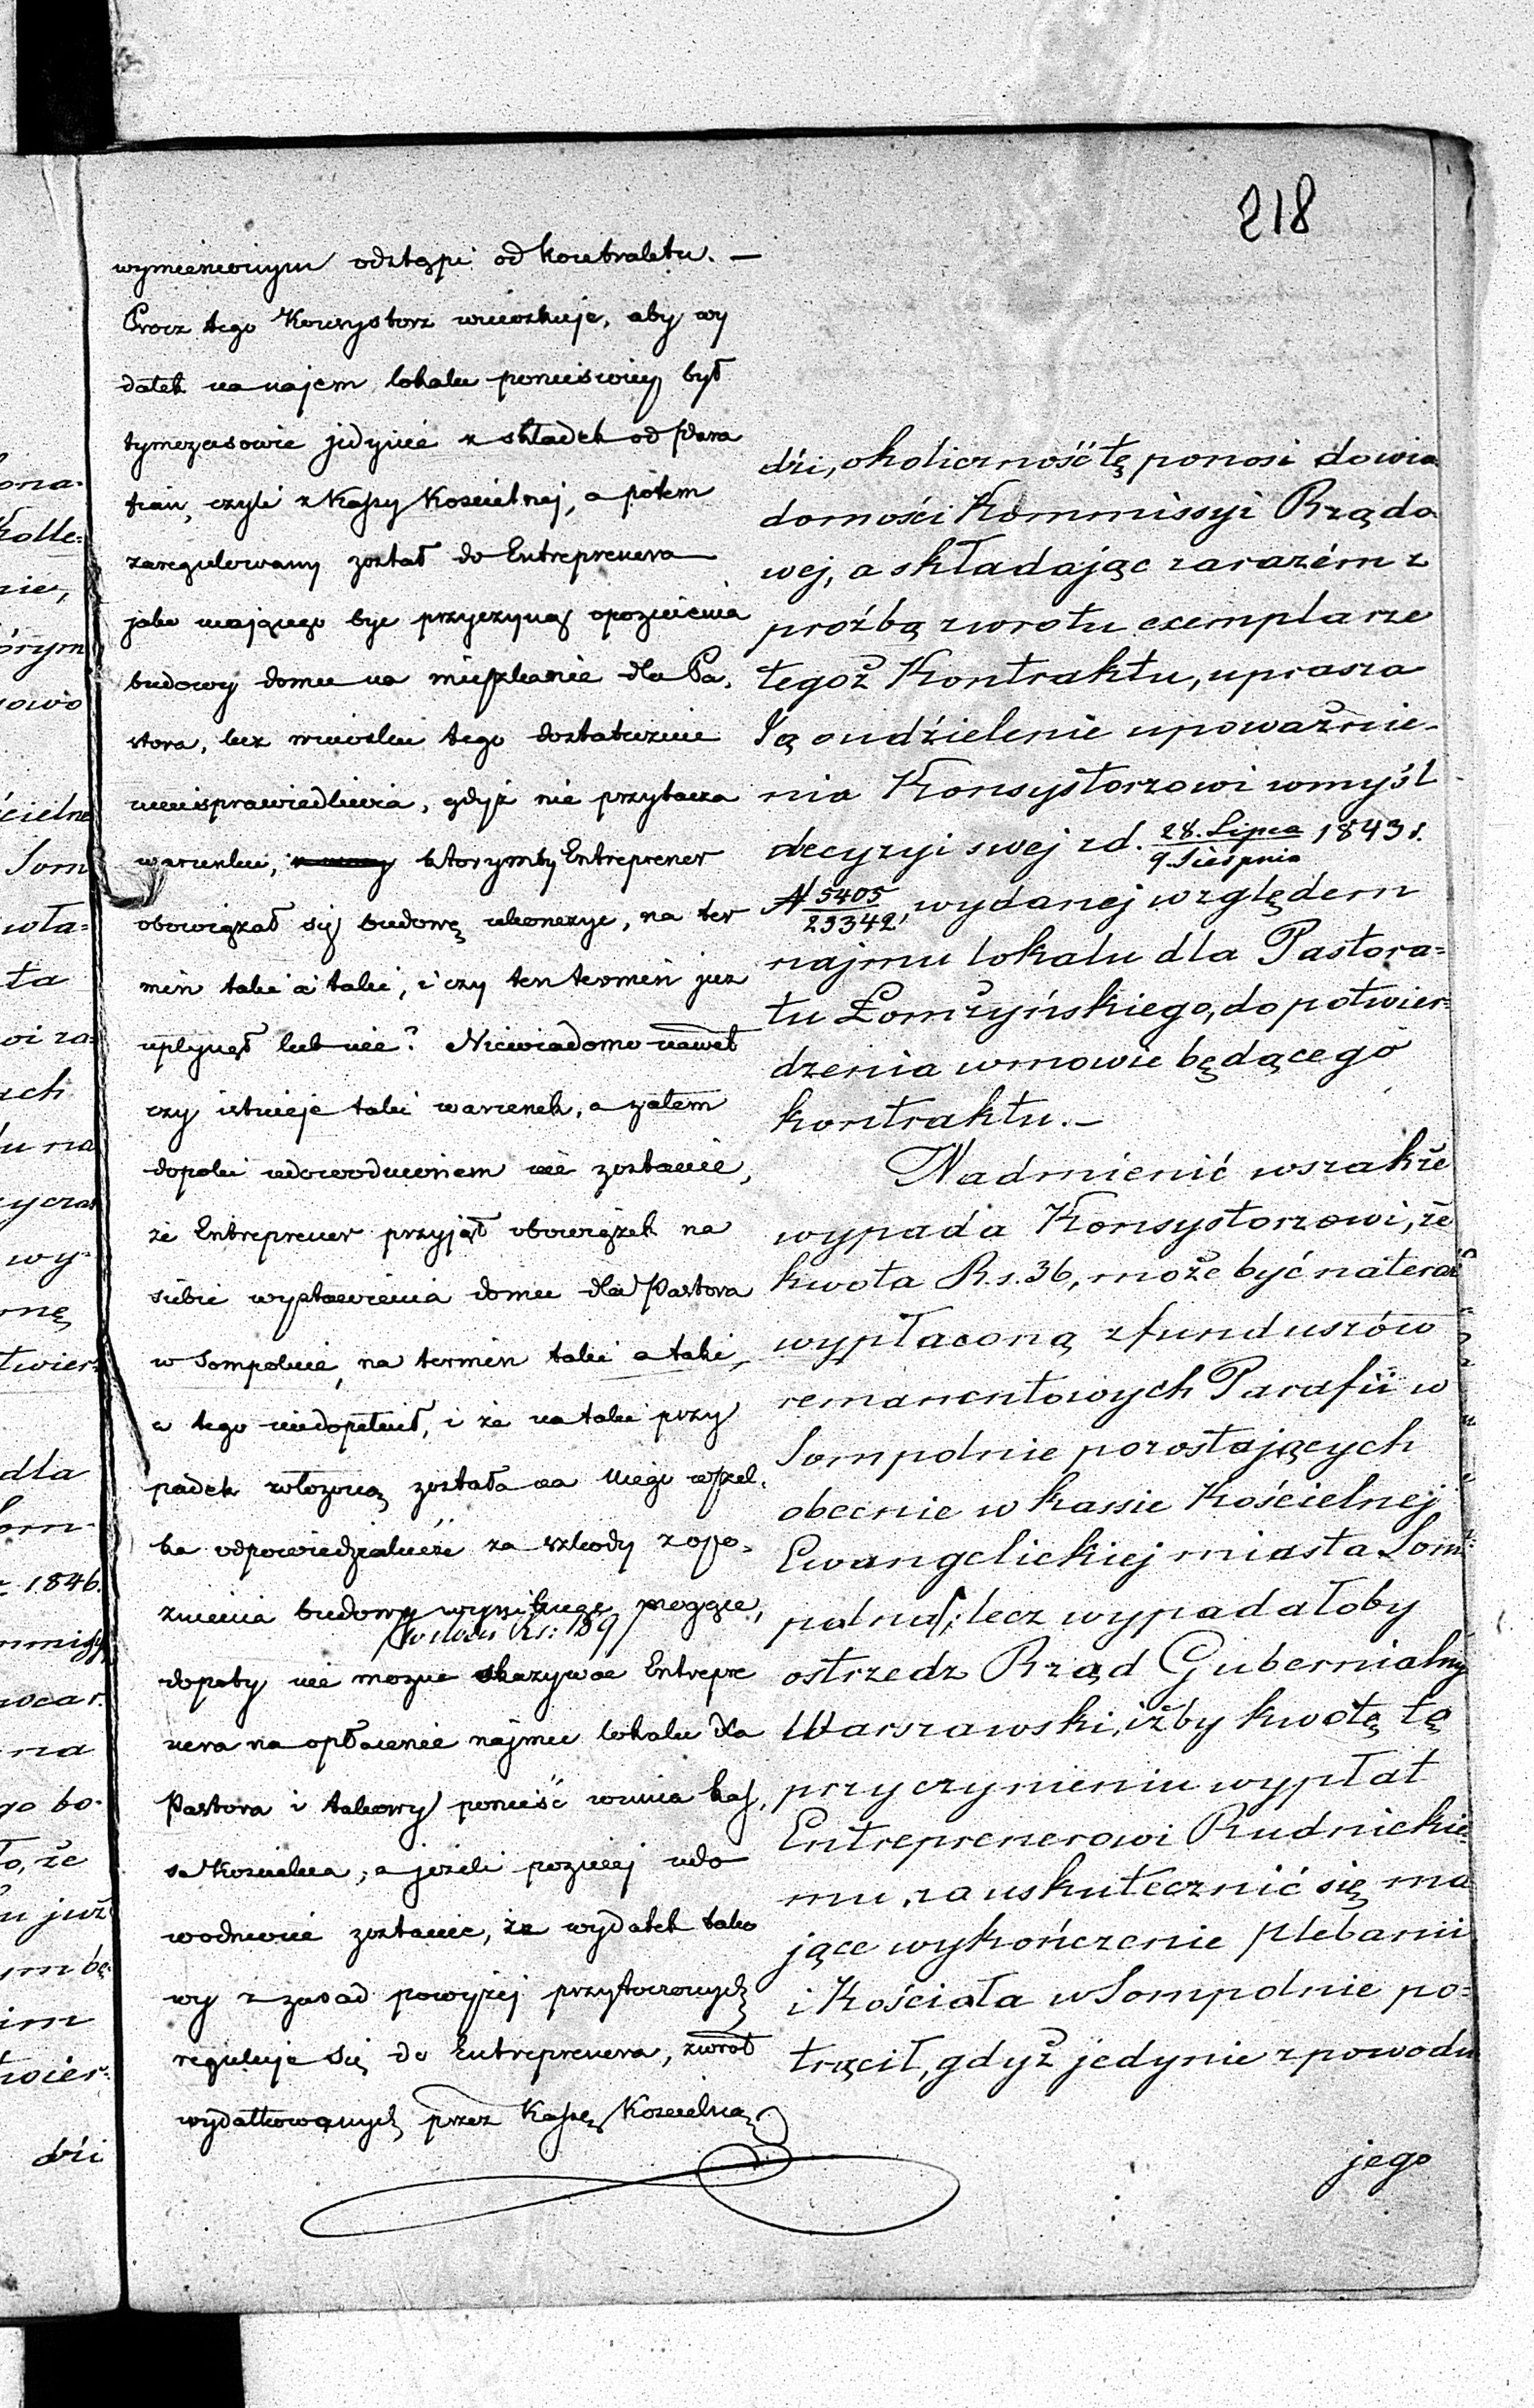 218
wymienionym odstąpi od kontraktu. —
Prócz tego Konsystorz wnioskuje, aby wy
datek na najem lokalu poniesiony był
tymczasowie jedynie z składek od Para
fian, czyli z Kassy Kościelnej, a potem
zaregulowany został do Entreprenera
jako mającego być przyczyną opoznienia
budowy domu na mieszkanie dla Pa,
stora, lecz wniosku tego dostatecznie
nieusprawiedliwia, gdyż nie przytacza
warunku, którymby Entreprener
obowiązał się budowę ukończyc, na ter
min taki a taki, i czy ten termin juz
upłynął lub nie? Niewiadomo nawet
czy istnieje taki warunek, a zatem
dopoki udowodnionem nie zostanie,
że Entreprener przyjął obowiązek na
siebie wystawienia domu dla Pastora
w Sompolnie, na termin taki a taki,
a tego niedopełnił, i że na taki przy
padek włożoną została na niego wszel,
ka odpowiedzialność za szkody z opo,
znienia budowy wyniknąć mogące,
dopoty nie można skazywac Entrepre
nera na opłacenie najmu lokalu dla
Pastora i takowy ponieść winna kas,
sa Kościelna; a jeżeli pozniej udo
wodnione zostanie, że wydatek tako
wy z zasad powyżej przytoczonych
reguluje się do Entreprenera, zwrot
wydatkowanych przez Kassę Kościelną
dzi, okoliczność tę ponosi do wia
domości Kommissyi Rządo
wej, a składając zarazém z
proźbą zwrotu exemplarze
tegoż Kontraktu, uprasza
Ją o udzielenie upoważnie-
nia Konsystorzowi w myśl
decyzyi swej z d. 28. Lipca / 9 Sierpnia 1843 r.
N 5405/23342, wydanej względem
najmu lokalu dla Pastora=
tu Łomżyńskiego, do potwier=
dzenia w mowie będącego
kontraktu. —
Nadmienić wszakże
wypada Konsystorzowi, że
kwota R.s. 36, może być na teraz
wypłaconą z funduszów
remanentowych Parafii w
Sompolnie pozostających
obecnie w kassie Kościelnej
Ewangelickiej miasta Som=
polna; lecz wypadałoby
ostrzedz Rząd Gubernialny
Warszawski, iżby kwotę tę
przy czynieniu wypłat
Entreprenerowi Rudnickie
mu, za uskutecznić się ma
jące wykończenie plebanii
i Kościoła w Sompolnie po=
trącił, gdyż jedynie z powodu
jego